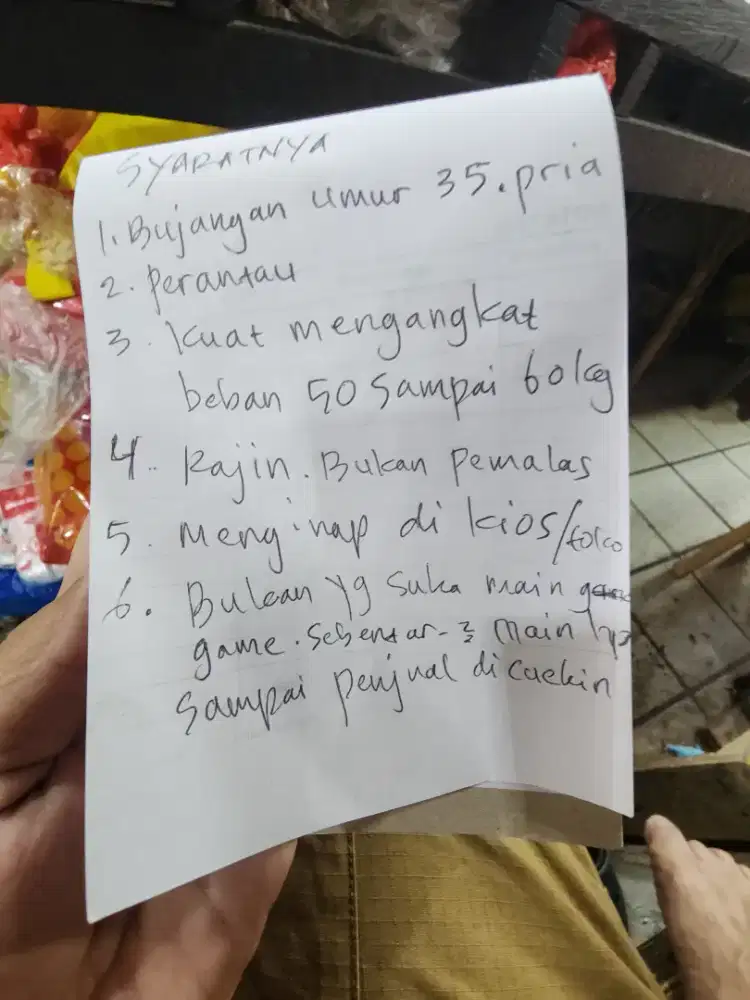 SYARATNYA
1. Bujangan umur 35. pria
2. Perantau
3. Kuat mengangkat
beban 50 sampai 60 kg
4. Rajin. Bukan pemalas
5. Menginap di kios/toko
6. Bukan yg suka main
game. Sebentar-2 main hp
sampai penjual di cuekin